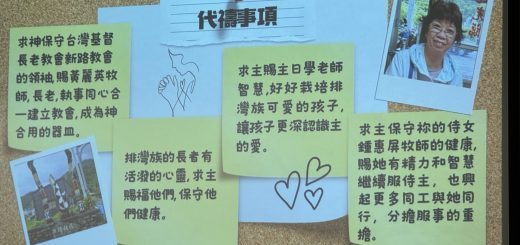 代禱事項
求神保守台灣基督
長老教會新路教會
的領袖,賜黃麗英牧
師,長老,執事同心合
一建立教會,成為神
合用的器皿。
排灣族的長者有
活潑的心靈,求主
賜福他們,保守他
們健康。
求主賜主日學老師
智慧,好好栽培排
灣族可愛的孩子,
讓孩子更深認識主
的愛。
求主保守祢的侍女
鍾惠屏牧師的健康,
賜她有精力和智慧
繼續服侍主, 也興
起更多同工與她同
行, 分擔服事的重
擔。